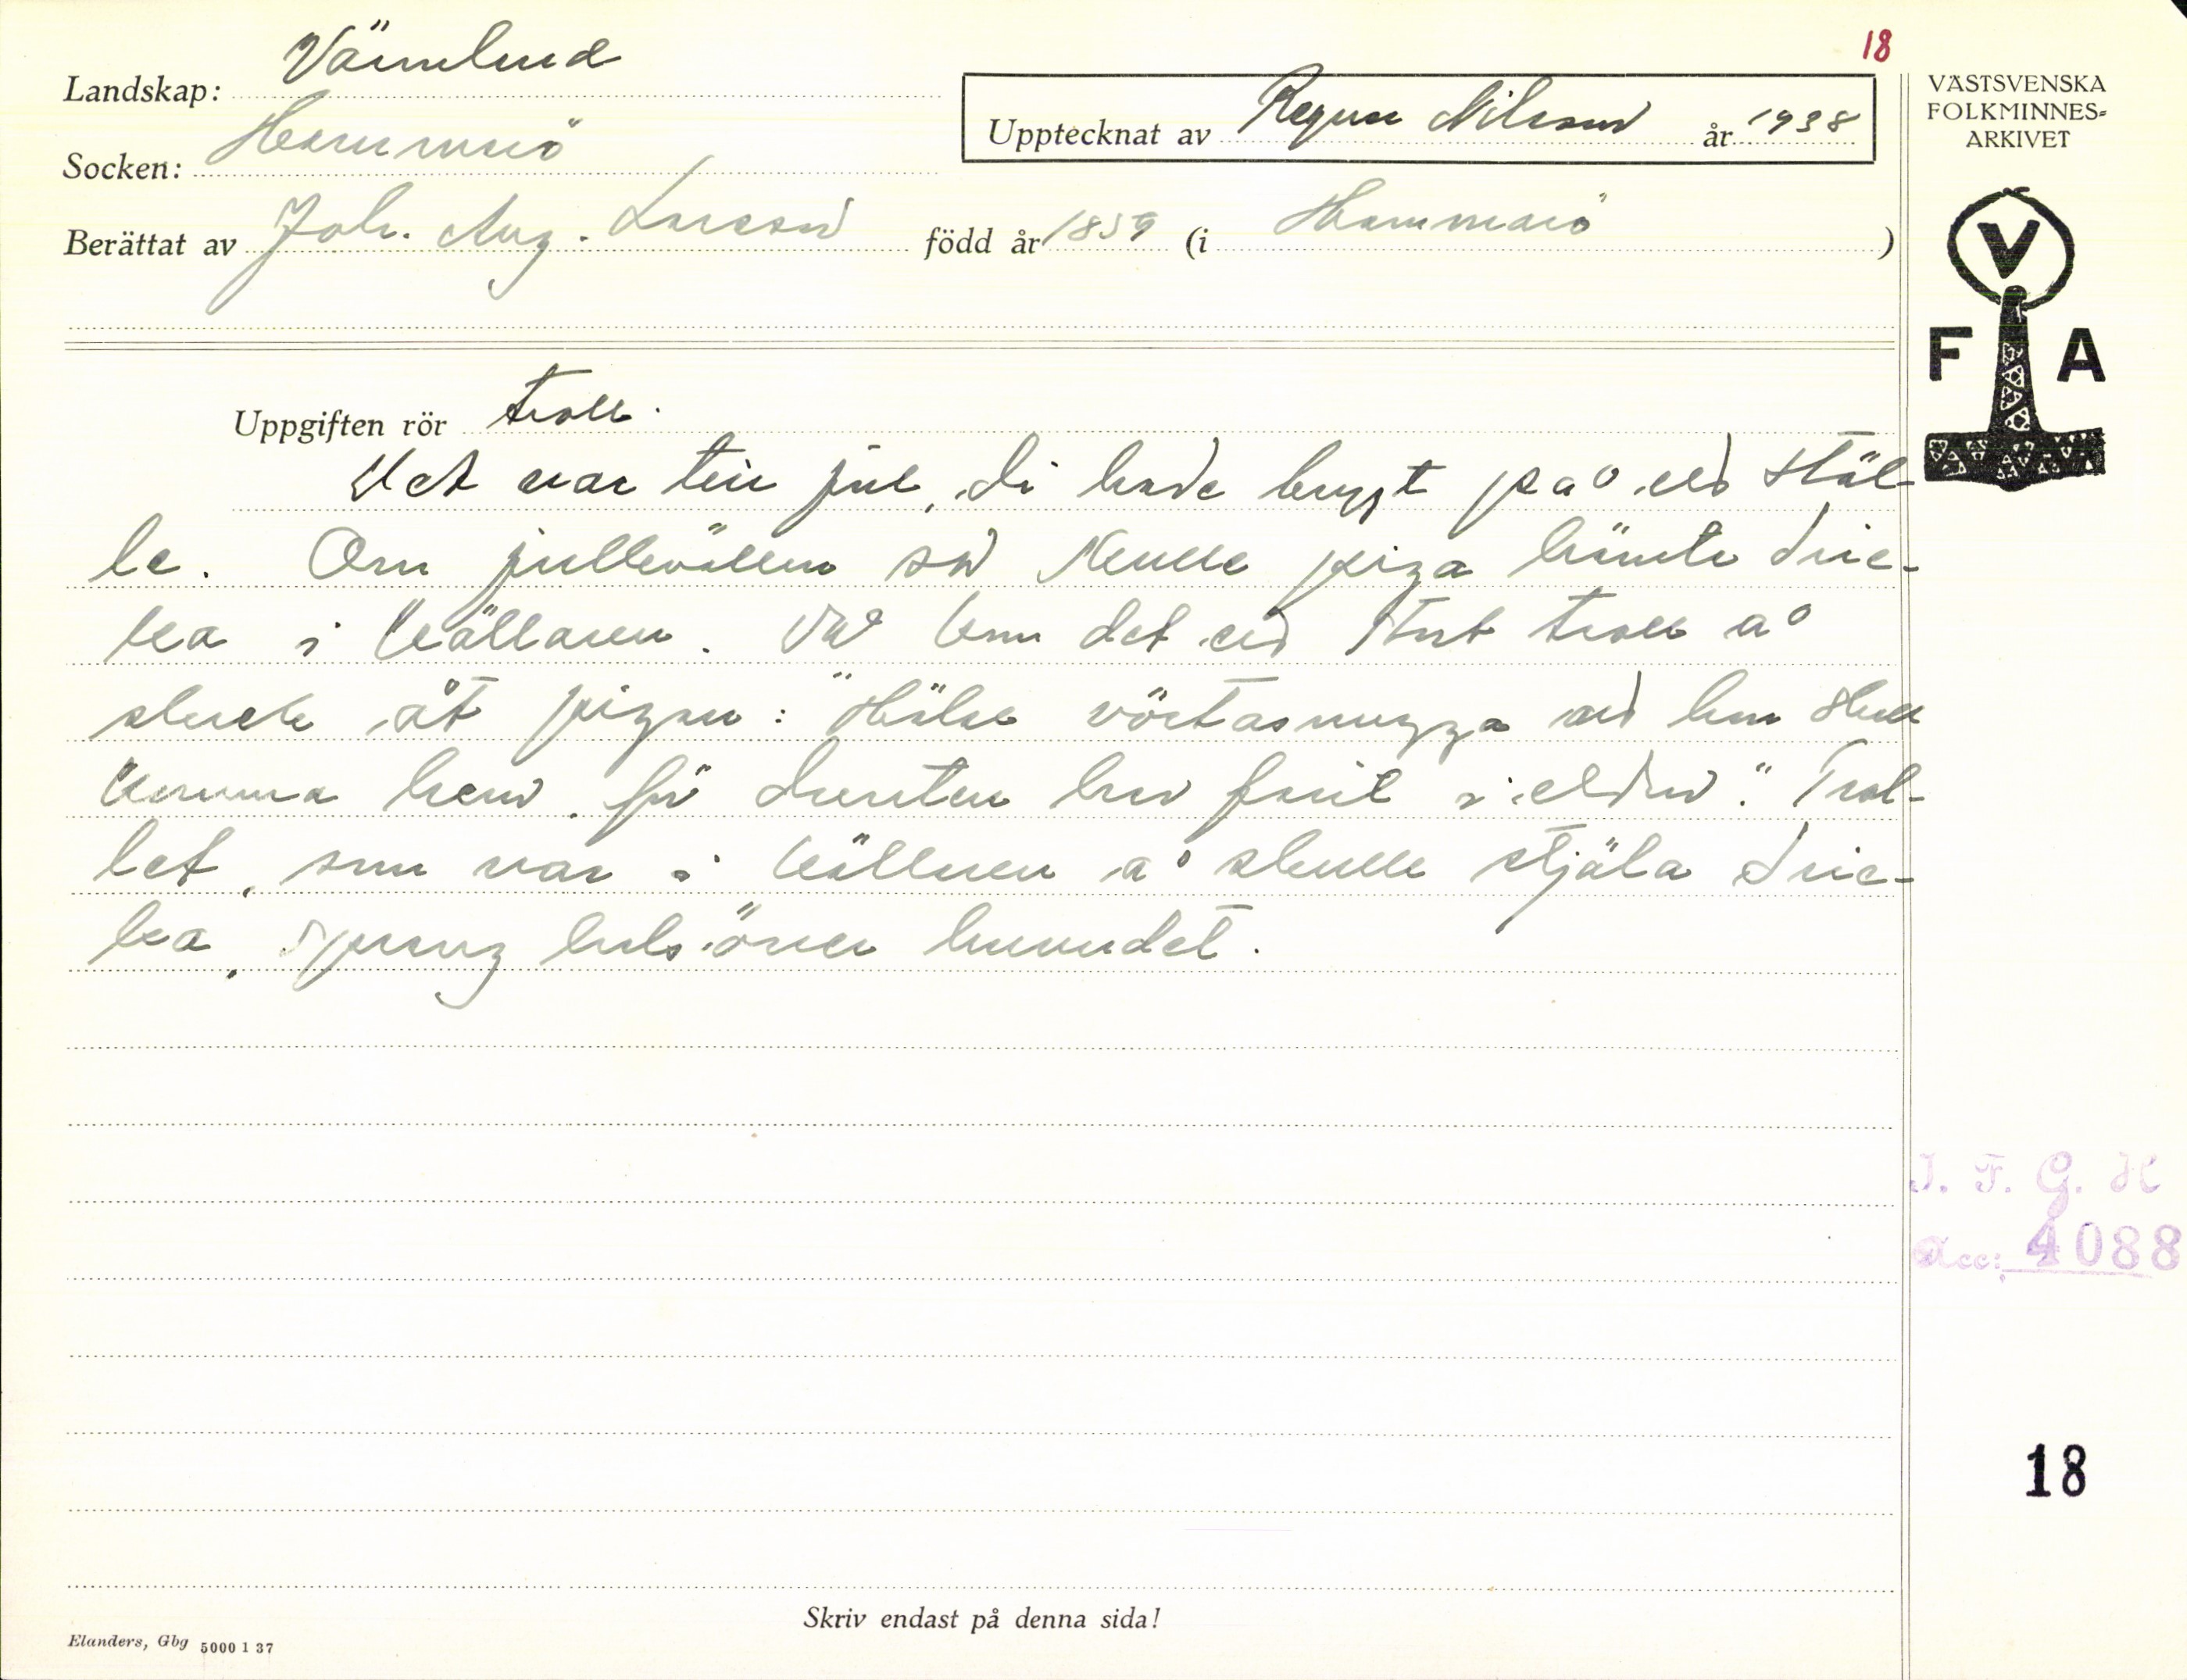 18
Landskap: Värmland
Socken: Hammarö
Upptecknat av Ragnar Nilsson år 1938
Berättat av Joh. Aug. Larsson född år 1859 (i Hammarö )
VÄSTSVENSKA
FOLKMINNES=
ARKIVET
V
F A
Uppgiften rör troll.
Det var te jul, di hade brygt på ed stäl-
le. Om jullkvällen så skulle piga hämta dric-
ka i källaren. Då kom det ed stort troll å
skrek åt pigan: "Hälse vörtasnugga ad hon skall
komma hem, för dunten har farit i elden." Trol-
let, som var i källaren å skulle stjäla dric-
ka, sprang hals över huvudet.
I. F. G. H
Acc: 4088
18
Skriv endast på denna sida!
Elanders, Gbg 5000 1 37